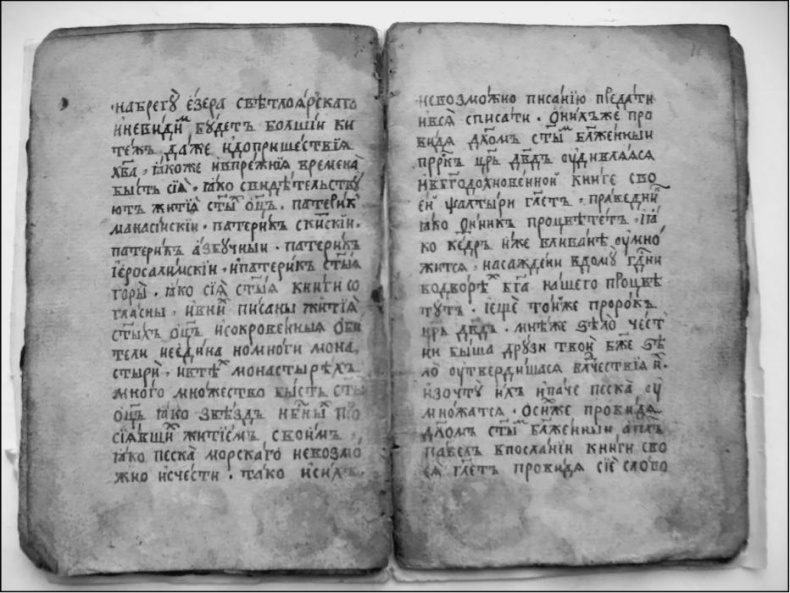 на брегꙋ̀ е҆́зера свѣтлоѧ́рскагѡ
и҆ невиди́м бꙋ́детъ болшїи ки
тежъ да́же и҆ до прише́ствїѧ
хв҃а . ꙗ҆́коже и҆ в пре́жнїѧ времена̀
бысть сїѧ̀ . ꙗ҆́ко свидѣ́тельствꙋ
ютъ житїѧ̀ ст҃ы́х ѻ҆ц҃ъ . патери́к
манаси́искїи . патери́къ ски́скїи .
патери́къ а҆́збꙋчныи . патери́къ
і҆еросали́мскїи . и҆ патери́къ ст҃ы́ѧ
горы̀ . ꙗ҆́ко сїѧ̀ ст҃ы́ѧ кни́ги со
гла́сны . и҆ в ни́х пи́саны житїѧ̀
ст҃ы́хъ ѻ҆ц҃ъ и҆ сокрове́нныѧ ѻ҆би
тели не є҆ди́на но мно́ги мона
стырѝ . и҆ в тѣ́х монастырѣ́хъ
мно́го мно́жество бы́сть ст҃ы
ѻ҆ц҃ъ ꙗ҆́ко ѕвѣ́здъ нб҃ны́х про
сїѧ́вших житїе́мъ свои́мъ .
ꙗ҆́ко песка̀ морска́го невозмо
жно и҆сче́сти . та́ко и҆ си́хъ .
невозмо́жно писа́нїю преда́ти
и҆ всѧ̀ списа́ти . Ѻ҆ ни́хъ же про
видѧ дх҃омъ ст҃ы́м бл҃же́нныи
прⷪ҇ркъ цр҃ь дв҃дъ ѹ҆дивлѧ́ѧсѧ
и҆ в бг҃одохнове́нной кни́ге сво
е́й ѱалты́ри гл҃етъ . пра́ведник
ꙗ҆́ко фи́никъ процвѣте́тъ . ꙗ҆́
ко ке́дръ и҆́же в лива́нѣ ѹ҆мно́
житсѧ . насажде́ни в домꙋ̀ гд҃ни
во дво́рѣх бг҃а на́шего процвѣ
тꙋ́тъ . і҆ е҆щѐ то́йже проро́къ
цр҃ь дв҃дъ . мнѣ́же ѕѣло̀ чест
ни бы́ша дрꙋ́зи твоѝ бж҃е ѕѣ
ло̀ ѹ҆тверди́шасѧ вл҃чествїѧ и҆́х .
и҆зочтꙋ̀ и҆́хъ и҆ па́че песка̀ ѹ҆
мно́жатсѧ . Ѻ҆ си́хже прови́дѧ
дх҃омъ ст҃ы́м бл҃же́нныи а҆пⷭ҇лъ
па́велъ в посла́нїи кни́ги сво
еѧ̀ гл҃етъ прови́дѧ сїѐ сло́во